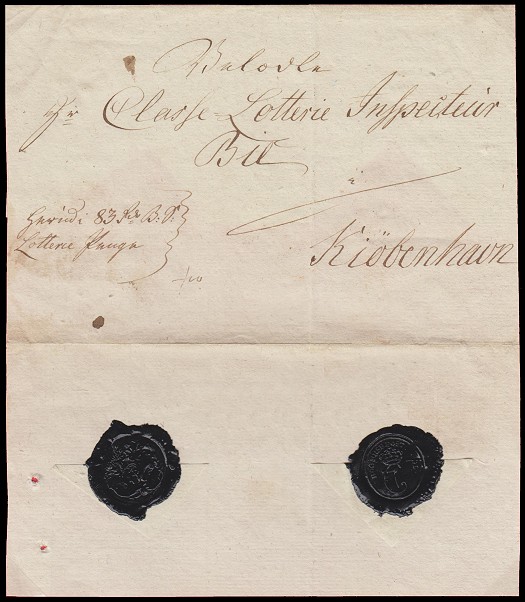 Velædle
Hr Classe-Lotterie Inspecteur
Bie
i
Kiöbenhavn
Herudi 83 Rd B: S:
Lotterie Penge